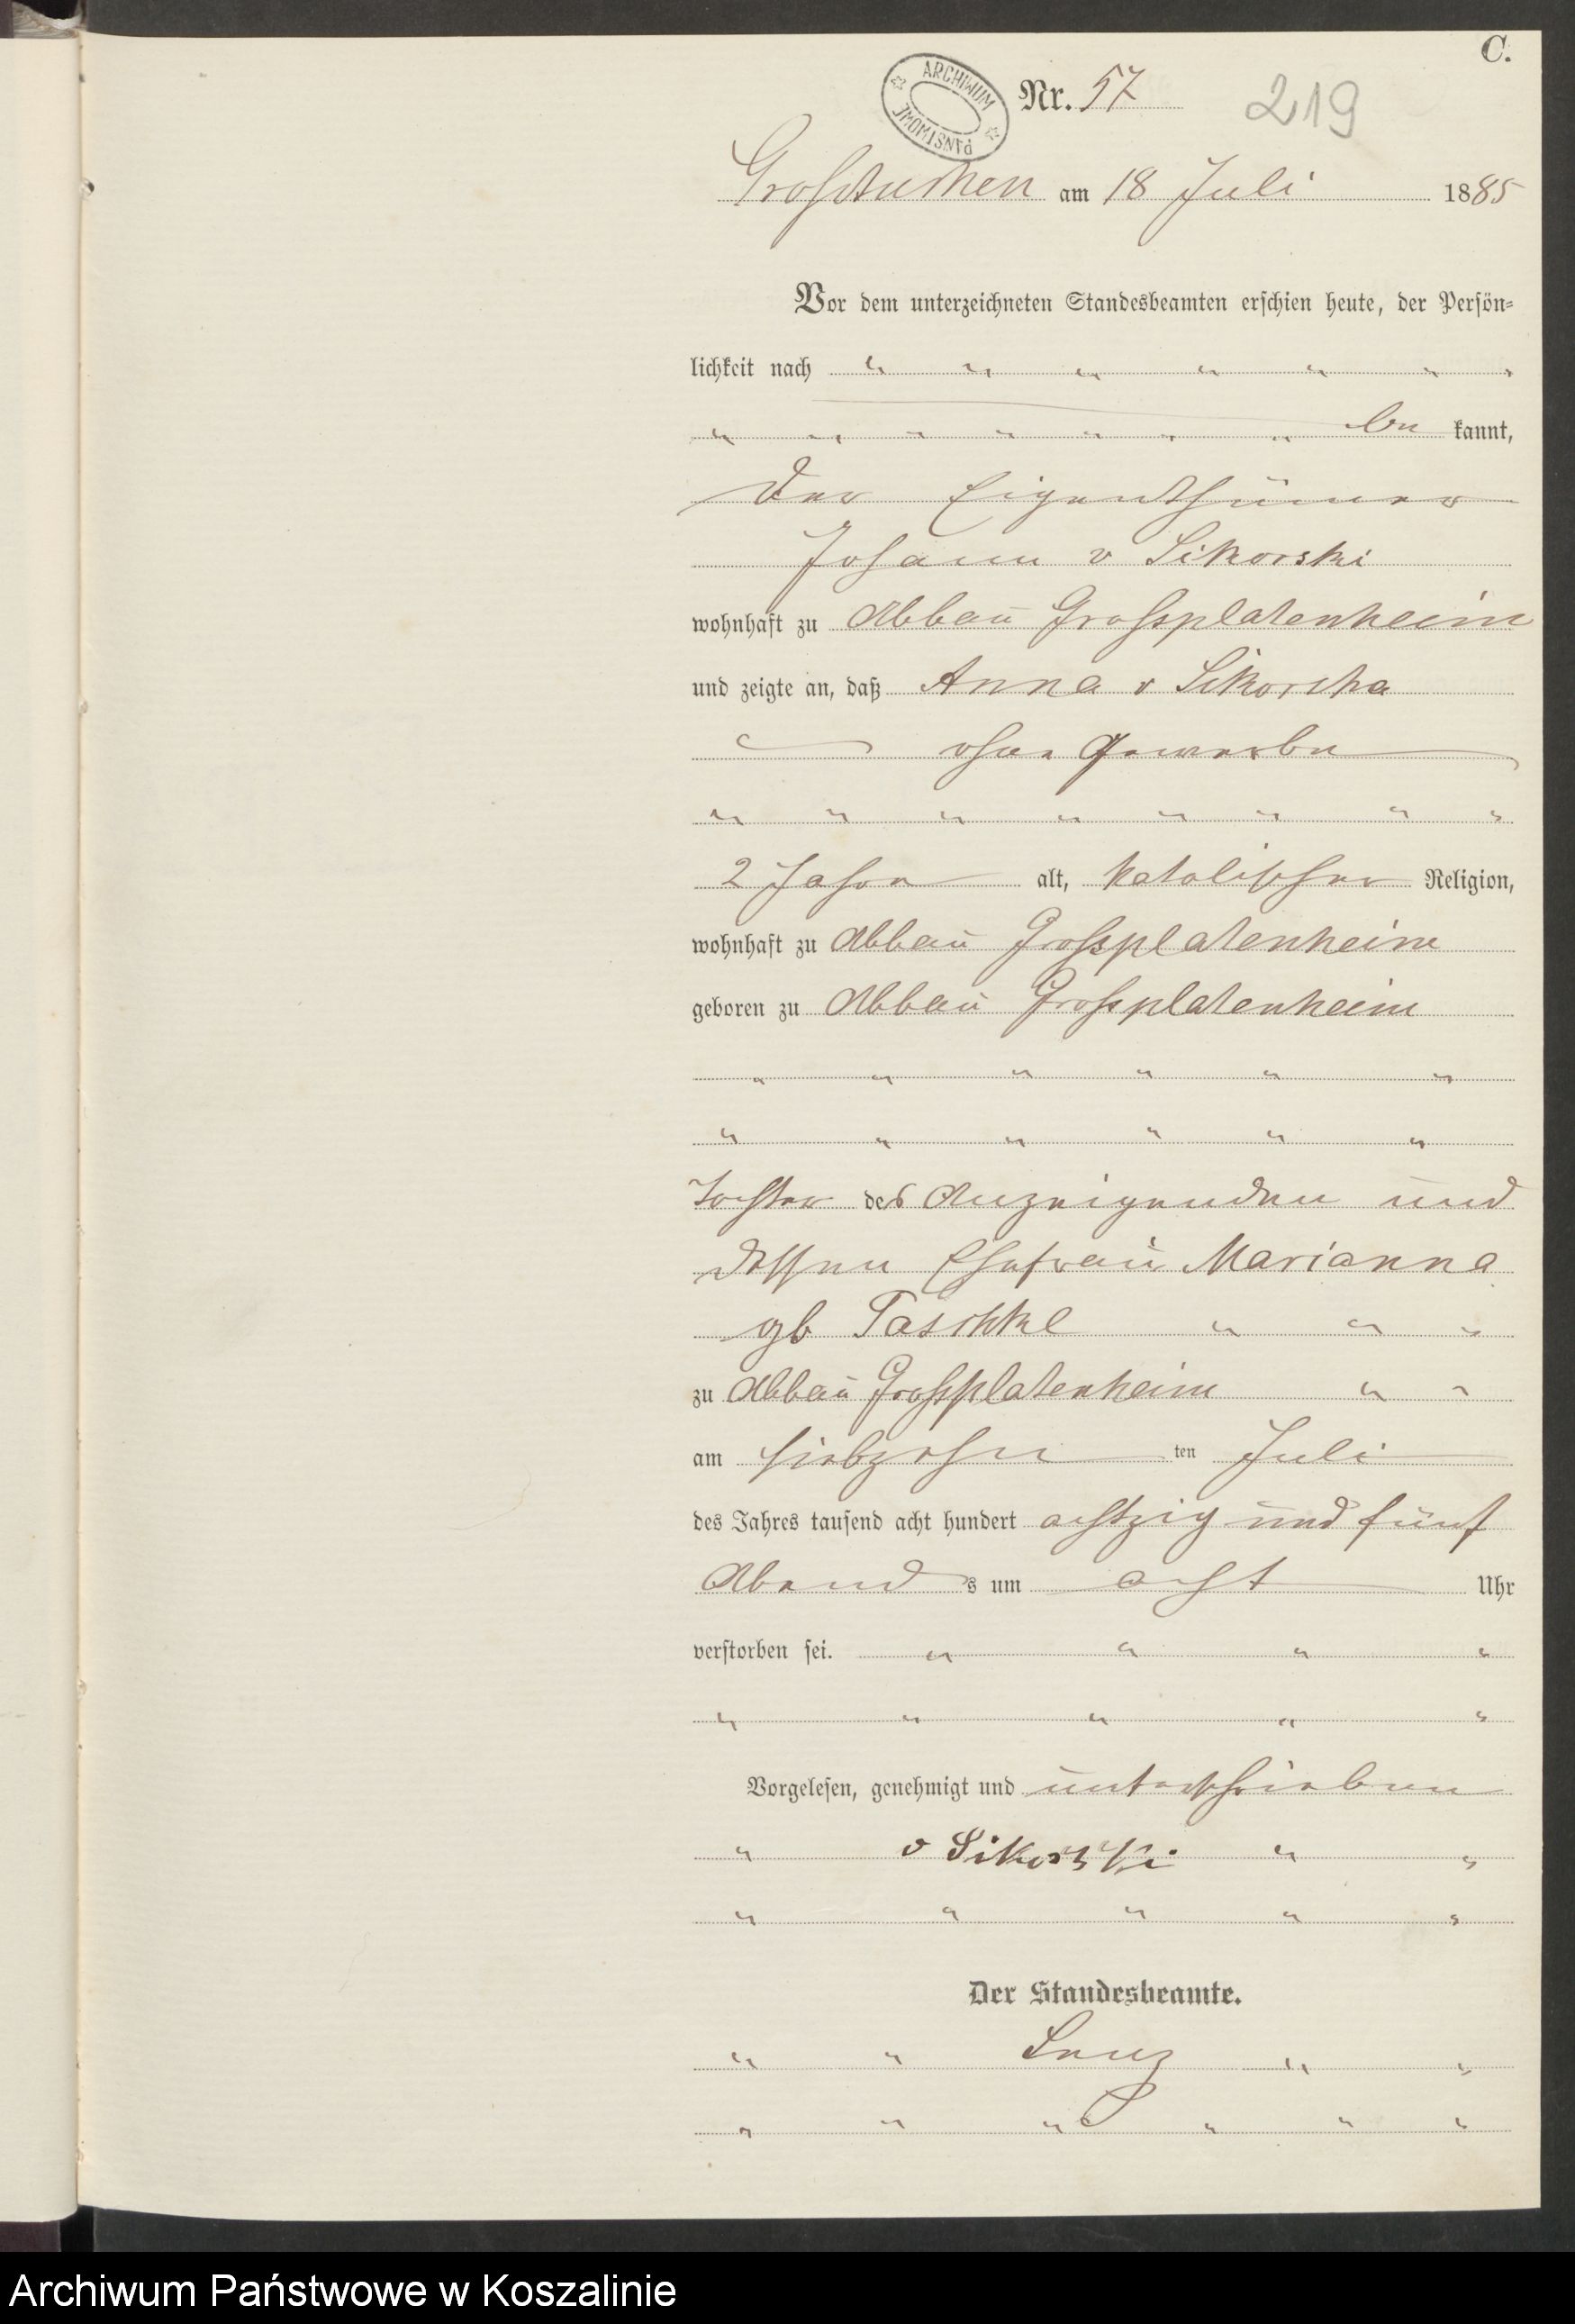 C.
ARCHIWUM
PAŃSTWOWE
Nr. 57
219
Grosstuchen am 18 Juli 1885
Vor dem unterzeichneten Standesbeamten erschien heute, der Persön-
lichkeit nach " " " " " " "
" " " " " " " be kannt,
der Eigenthümer
Johann v Sikorski
wohnhaft zu Abbau Grossplatenheim
und zeigte an, daß Anna v Sikorska
ohne Gewerbe
" " " " " " " "
2 Jahre alt, katolischer Religion,
wohnhaft zu Abbau Grossplatenheim
geboren zu Abbau Grossplatenheim
" " " " " "
" " " " " "
Tochter des Anzeigenden und
dessen Ehefrau Marianna
gb Taschke " " "
zu Abbau Grossplatenheim " "
am siebzehn ten Juli
des Jahres tausend acht hundert achtzig und fünf
Abend s um acht Uhr
verstorben sei. " " " "
" " " " "
Vorgelesen, genehmigt und unterschrieben
" v Sikorski " "
" " " " "
Der Standesbeamte.
" " Lenz " "
" " " " " "
Archiwum Państwowe w Koszalinie